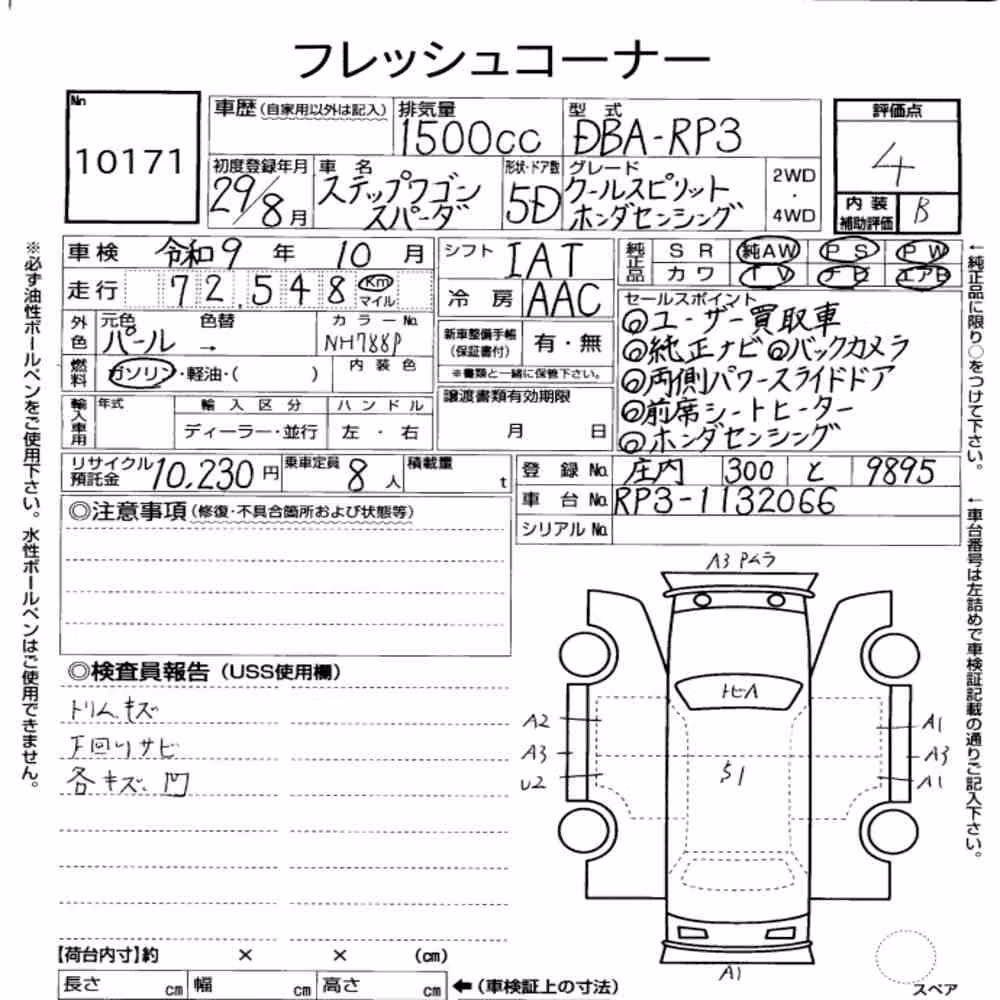 フレッシュコーナー
No 10171
車歴(自家用以外は記入)
排気量 1500cc
型式 DBA-RP3
評価点 4
内装補助評価 B
初度登録年月 29/8月
車名 ステップワゴン スパーダ
形状・ドア数 5D
グレード クールスピリット ホンダセンシング
2WD・4WD
車検 令和9年10月
走行 72,548 Km マイル
シフト IAT
冷房 AAC
純正品 SR 純AW PS PW
カワ TV ナビ エアB
外色 元色 パール → 色替
カラーNo. NH788P
燃料 ガソリン・軽油・( )
内装色
新車整備手帳(保証書付) 有・無
※書類と一緒に保管下さい。
セールスポイント
◎ユーザー買取車
◎純正ナビ◎バックカメラ
◎両側パワースライドドア
◎前席シートヒーター
◎ホンダセンシング
輸入車用 年式 輸入区分 ハンドル
ディーラー・並行 左・右
譲渡書類有効期限
月 日
リサイクル預託金 10,230円
乗車定員 8人
積載量 t
登録No. 庄内 300 と 9895
車台No. RP3-1132066
シリアルNo.
◎注意事項(修復・不具合箇所および状態等)
◎検査員報告(USS使用欄)
トリムキズ
下回りサビ
各キズ、凹
A3 Pムラ
トビA
A2
A3
U2
S1
A1
A3
A1
A1
スペア
【荷台内寸】約 × × (cm)
長さ cm 幅 cm 高さ cm ←(車検証上の寸法)
※必ず油性ボールペンをご使用下さい。水性ボールペンはご使用できません。
←純正品に限り○をつけて下さい。
←車台番号は左詰めで車検証記載の通りご記入下さい。